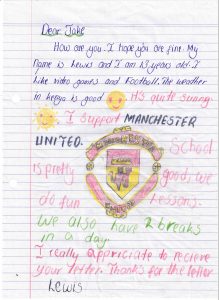 Dear Jake
How are you. I hope you are fine. My
name is Lewis and I am 13 years old. I
like video games and Football. The weather
in kenya is good It's quit sunny.
I support MANCHESTER
UNITED. School
is pretty good, we
do fun lessons.
We also have 2 breaks
in a day.
I really appriciate to recieve
your letter. Thanks for the letter
LEWIS